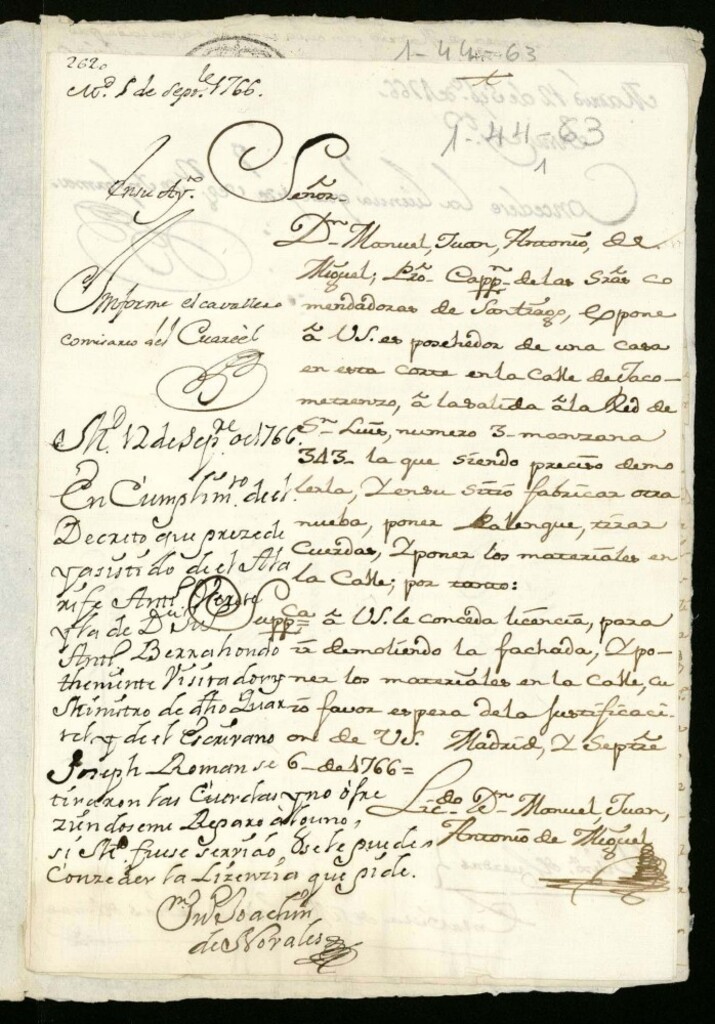 1-44-63
262.
M.d 1 de Sepre. 1766.
1-44-63
1
En su Ay.to
Informe el cavallero
comisario del Cuartel
Señor
Dn. Manuel, Juan, Antonio, de
Miguel; Pro. Cappn. de las Sras. co
mendadoras de Santiago, expone
â VS. es posehedor de una casa
en esta corte en la Calle de Jaco-
metrenzo, â la salida â la Red de
Sn. Luis, numero 3 manzana
343 - la que siendo preciso demo
lerla, Y en su sitio fabricar otra
nueba, poner Palengue, tirar
Cuerdas, Y poner los materiales en
la Calle; por tanto:
Suppca. â VS. le conceda licencia, para
ir demoliendo la fachada, Y po-
ner los materiales en la Calle, cu
io favor espera de la Justificaci-
on de VS. Madrid, Y Septre.
6 de 1766=
Licdo. Dn. Manuel, Juan,
Antonio de Miguel
Md. 12 de Sepre. de 1766.
En Cumplimto. de el
Decreto que prezede
y asistido de el Ala
rife Anto.
y la de Dn. Ju.
Anto. Berrahondo
theniente Visitador y
Ministro de dho Quar
tel y de el Escrivano
Joseph Roman se
tiraron las Cuerdas y no ofre
ziendoseme Reparo alguno,
si Md. fuese servido, sele puede
Conzeder la Lizenzia que pide.
Joachin
de Novales